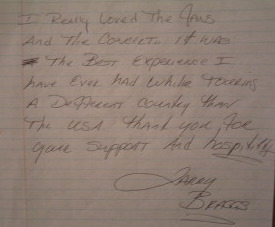 I Really Loved The Fans
And The Concert. It was
The Best Experience I
have Ever had While Touring
A Different Country than
The USA thank you, for
your support And hospitality
Larry
Braggs